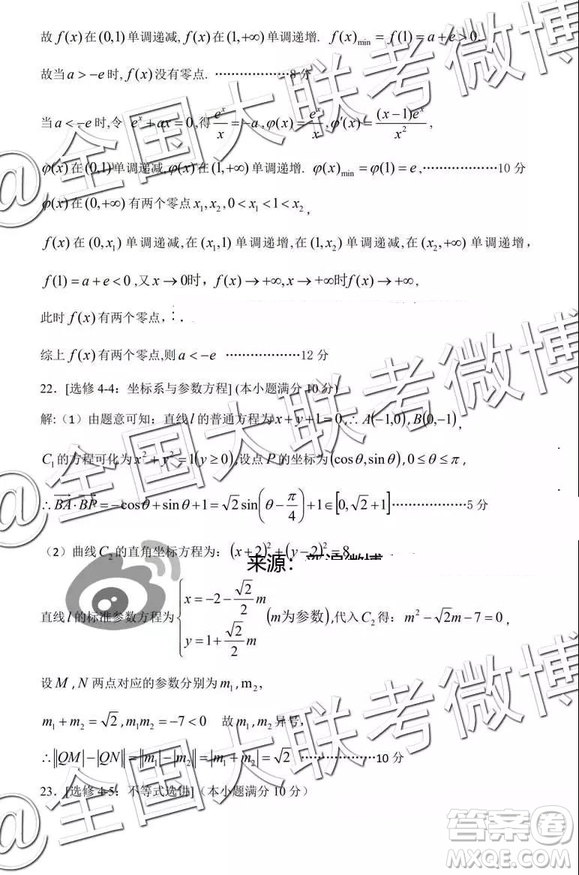 故 f(x) 在 (0,1) 单调递减, f(x) 在 (1,+∞) 单调递增. f(x)min = f(1) = a + e > 0.
故当 a > −e 时, f(x) 没有零点. ………………8 分
当 a < −e 时,令 e^x + ax = 0,得 e^x/x = −a , φ(x) = e^x/x , φ'(x) = (x−1)e^x/x² ,
φ(x) 在 (0,1) 单调递减, φ(x) 在 (1,+∞) 单调递增. φ(x)min = φ(1) = e , ………10 分
φ(x) 在 (0,+∞) 有两个零点 x₁, x₂, 0 < x₁ < 1 < x₂ ,
f(x) 在 (0, x₁) 单调递减,在 (x₁,1) 单调递增,在 (1, x₂) 单调递减,在 (x₂,+∞) 单调递增,
f(1) = a + e < 0 ,又 x → 0时, f(x) → +∞, x → +∞时f(x) → +∞,
此时 f(x) 有两个零点,
综上 f(x) 有两个零点,则 a < −e ………………12 分
22. [选修 4-4: 坐标系与参数方程] (本小题满分 10 分)
解:(1) 由题意可知: 直线 l 的普通方程为 x + y + 1 = 0, ∴ A(−1,0), B(0,−1) ,
C₁ 的方程可化为 x² + y² = 1(y ≥ 0),设点 P 的坐标为 (cosθ, sinθ), 0 ≤ θ ≤ π ,
∴ BA · BP = −cosθ + sinθ + 1 = √2 sin(θ − π/4) + 1 ∈ [0, √2 + 1] ………………5 分
(2) 曲线 C₂ 的直角坐标方程为: (x+2)² + (y−2)² = 8
来源:
直线 l 的标准参数方程为 { x = −2 − (√2/2)m y = 1 + (√2/2)m (m为参数),代入 C₂ 得: m² − √2m − 7 = 0 ,
设 M , N 两点对应的参数分别为 m₁, m₂ ,
m₁ + m₂ = √2, m₁m₂ = −7 < 0 故 m₁, m₂ 异号,
∴ ||QM| − |QN|| = ||m₁| − |m₂|| = |m₁ + m₂| = √2 ………………10 分
23. [选修 4-5: 不等式选讲] (本小题满分 10 分)
@全国大联考微博
@全国大联考微博
@全国大联考微博
答案圈
MXQE.COM